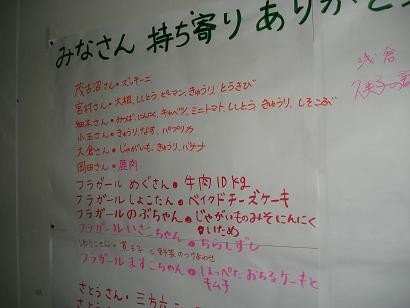 みなさん 持ち寄り ありがとう
茂古沼さん・ズッキーニ
宮村さん・大根、ししとう、ピーマン、きゅうり、とうきび
細木さん・みつば、にんにく、キャベツ、ミニトマト、ししとう、きゅうり、しそこおず
小玉さん・きゅうり、なす、パプリカ
大倉さん・じゃがいも、きゅうり、バナナ
岡田さん・鹿肉
フラガール めぐさん・牛肉10kg
フラガール しょこたん・ベイクドチーズケーキ
フラガール のぶちゃん・じゃがいものみそにんにく
いため
フラガール いさこちゃん・ちらしずし
フラガール ますこちゃん・ほっぺたおちるケーキと
キムチ
さとうさん・三方六
浅倉